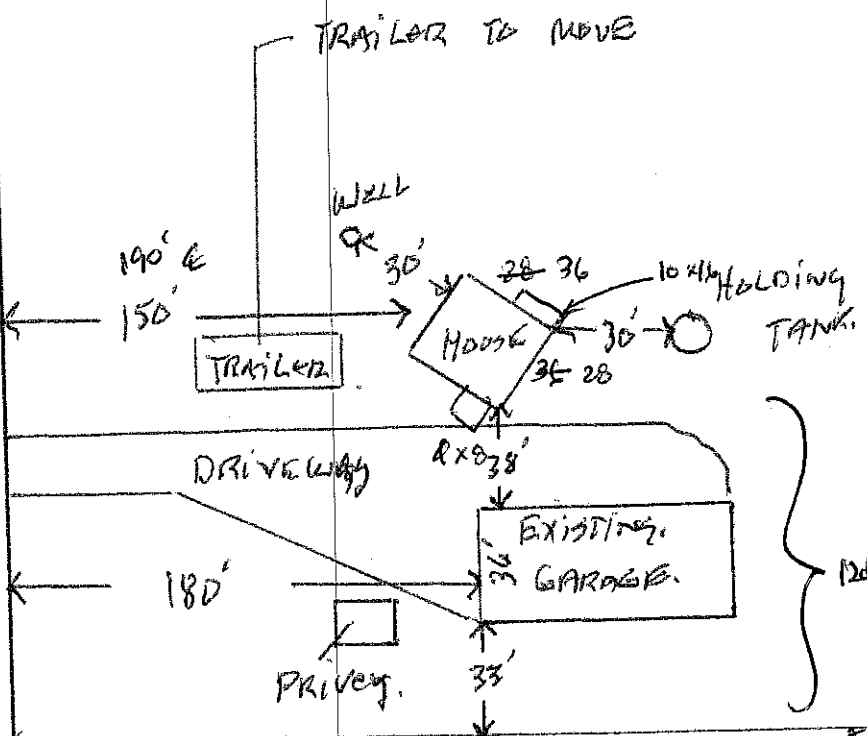 TRAILER TO MOVE
WELL
190' ℄
150'
30'
28 36
10 x16
HOLDING
TANK.
30'
HOUSE
TRAILER
36 28
8x8
38'
DRIVEWAY
EXISTING.
GARAGE.
36'
180'
PRIVEY.
33'